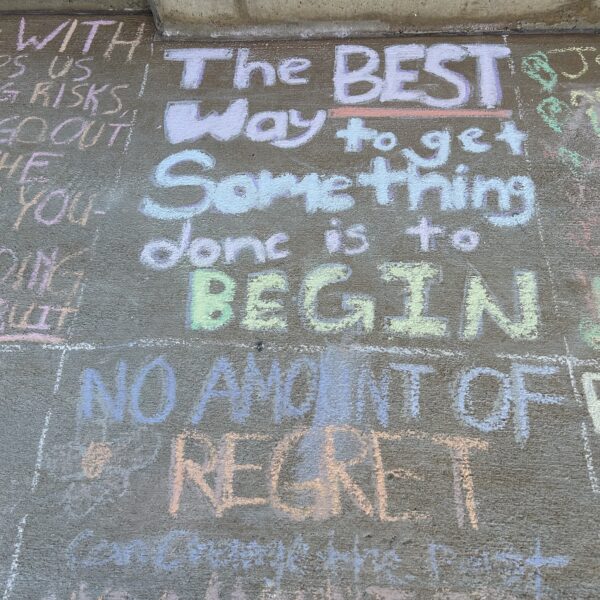 WITH
US
RISKS,
OUT
YOU-
The BEST
Way to get
Something
done is to
BEGIN
NO AMOUNT OF
REGRET
Can Change the Past